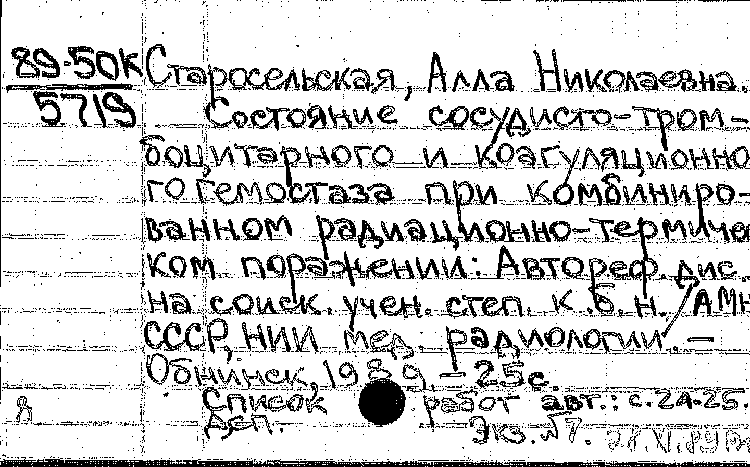 89-50К Старосельская, Алла Николаевна.
5719 Состояние сосудисто-тром-
боцитарного и коагуляционно
го гемостаза при комбиниро-
ванном радиационно-термичес
ком поражении: Автореф. дис.
на соиск. учен. степ. к.б.н./АМН
СССР, НИИ мед. радиологии.—
Обнинск, 1989 – 25с.
Список работ авт.: с.24-25.
8 Деп. Экз. №7.